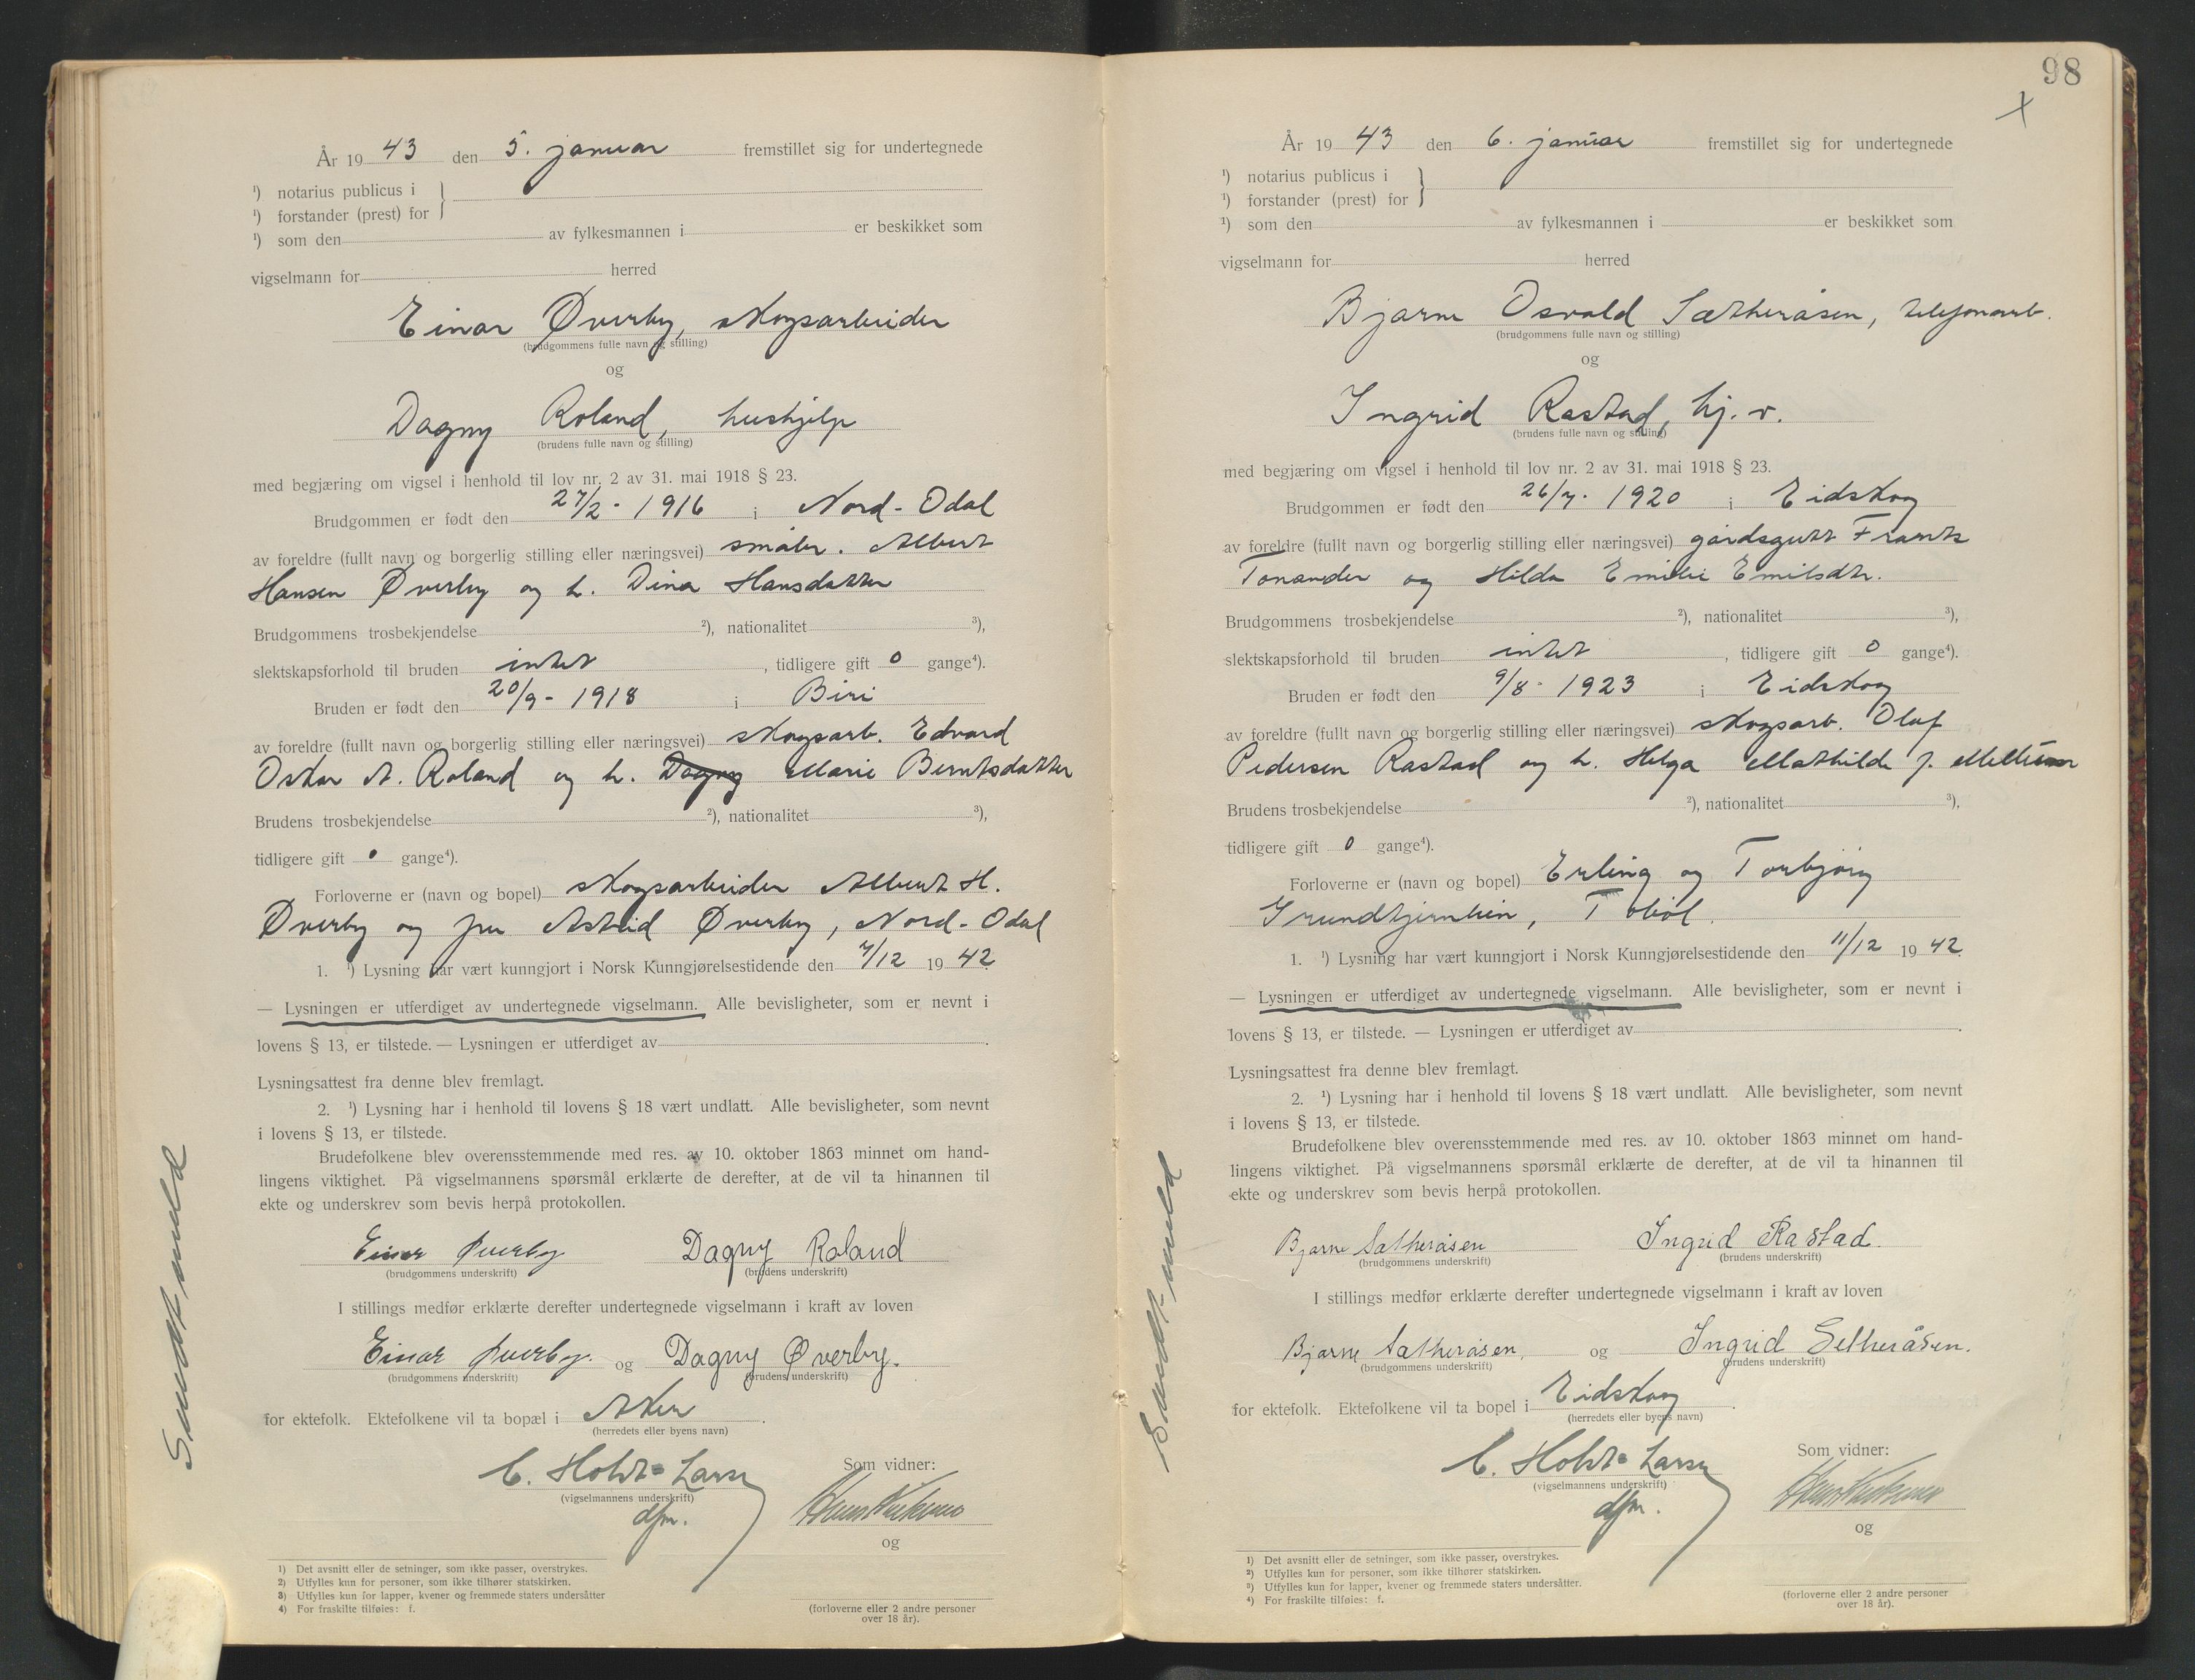 År 1943 den 5. januar fremstillet sig for undertegnede
¹) notarius publicus i
¹) forstander (prest) for
¹) som den av fylkesmannen i er beskikket som
vigselmann for herred
Einar Øverby, skogsarbeider
(brudgommens fulle navn og stilling)
og
Dagny Roland, hushjelp
(brudens fulle navn og stilling)
med begjæring om vigsel i henhold til lov nr. 2 av 31. mai 1918 § 23.
Brudgommen er født den 27/2 - 1916 i Nord-Odal
av foreldre (fullt navn og borgerlig stilling eller næringsvei) småbr. Albert
Hansen Øverby og h. Dina Hansdatter
Brudgommens trosbekjendelse ²), nationalitet ³),
slektskapsforhold til bruden intet, tidligere gift 0 gange⁴).
Bruden er født den 20/9 - 1918 i Biri
av foreldre (fullt navn og borgerlig stilling eller næringsvei) skogsarb. Edvard
Oskar A. Roland og h. Dagny Marie Berntsdatter
Brudens trosbekjendelse ²), nationalitet ³),
tidligere gift 0 gange⁴).
Forloverne er (navn og bopel) skogsarbeider Albert H.
Øverby og fru Astrid Øverby, Nord-Odal
1. ¹) Lysning har vært kunngjort i Norsk Kunngjørelsestidende den 7/12 1942
— Lysningen er utferdiget av undertegnede vigselmann. Alle bevisligheter, som er nevnt i
lovens § 13, er tilstede. — Lysningen er utferdiget av .
Lysningsattest fra denne blev fremlagt.
2. ¹) Lysning har i henhold til lovens § 18 vært undlatt. Alle bevisligheter, som nevnt
i lovens § 13, er tilstede.
Brudefolkene blev overensstemmende med res. av 10. oktober 1863 minnet om hand-
lingens viktighet. På vigselmannens spørsmål erklærte de derefter, at de vil ta hinannen til
ekte og underskrev som bevis herpå protokollen.
Einar Øverby Dagny Roland
(brudgommens underskrift) (brudens underskrift)
I stillings medfør erklærte derefter undertegnede vigselmann i kraft av loven
Einar Øverby. og Dagny Øverby.
(brudgommens underskrift) (brudens underskrift)
for ektefolk. Ektefolkene vil ta bopæl i Aker.
(herredets eller byens navn)
C. Holst-Larsen
(vigselmannens underskrift)
dfm.
Som vidner:
og
(forloverne eller 2 andre personer
over 18 år).
1) Det avsnitt eller de setninger, som ikke passer, overstrykes.
2) Utfylles kun for personer, som ikke tilhører statskirken.
3) Utfylles kun for lapper, kvener og fremmede staters undersåtter
4) For fraskilte tilføies: f.
Sendt meld
98
x
År 1943 den 6. januar fremstillet sig for undertegnede
¹) notarius publicus i
¹) forstander (prest) for
¹) som den av fylkesmannen i er beskikket som
vigselmann for herred
Bjarne Osvald Sætheråsen, telefonarb.
(brudgommens fulle navn og stilling)
og
Ingrid Rastad, hj. v.
(brudens fulle navn og stilling)
med begjæring om vigsel i henhold til lov nr. 2 av 31. mai 1918 § 23.
Brudgommen er født den 26/7 - 1920 i Eidskog
av foreldre (fullt navn og borgerlig stilling eller næringsvei) gårdsgutt Frants
Tonander og Hilda Emilie Emilsdtr.
Brudgommens trosbekjendelse ²), nationalitet ³),
slektskapsforhold til bruden intet, tidligere gift 0 gange⁴).
Bruden er født den 9/8 - 1923 i Eidskog
av foreldre (fullt navn og borgerlig stilling eller næringsvei) skogsarb. Olaf
Pedersen Rastad og h. Helga Mathilde f.
Brudens trosbekjendelse ²), nationalitet ³),
tidligere gift 0 gange⁴).
Forloverne er (navn og bopel) Erling og Torbjørg
Grundtjernlien, Tobøl.
1. ¹) Lysning har vært kunngjort i Norsk Kunngjørelsestidende den 11/12 1942
— Lysningen er utferdiget av undertegnede vigselmann. Alle bevisligheter, som er nevnt i
lovens § 13, er tilstede. — Lysningen er utferdiget av .
Lysningsattest fra denne blev fremlagt.
2. ¹) Lysning har i henhold til lovens § 18 vært undlatt. Alle bevisligheter, som nevnt
i lovens § 13, er tilstede.
Brudefolkene blev overensstemmende med res. av 10. oktober 1863 minnet om hand-
lingens viktighet. På vigselmannens spørsmål erklærte de derefter, at de vil ta hinannen til
ekte og underskrev som bevis herpå protokollen.
Bjarne Sætheråsen Ingrid Rastad.
(brudgommens underskrift) (brudens underskrift)
I stillings medfør erklærte derefter undertegnede vigselmann i kraft av loven
Bjarne Sætheråsen. og Ingrid Setheråsen.
(brudgommens underskrift) (brudens underskrift)
for ektefolk. Ektefolkene vil ta bopel i Eidskog.
(herredets eller byens navn)
C. Holst-Larsen
(vigselmannens underskrift)
dfm.
Som vidner:
og
(forloverne eller 2 andre personer
over 18 år).
1) Det avsnitt eller de setninger, som ikke passer, overstrykes.
2) Utfylles kun for personer, som ikke tilhører statskirken.
3) Utfylles kun for lapper, kvener og fremmede staters undersåtter.
4) For fraskilte tilføies: f.
Sendt meld